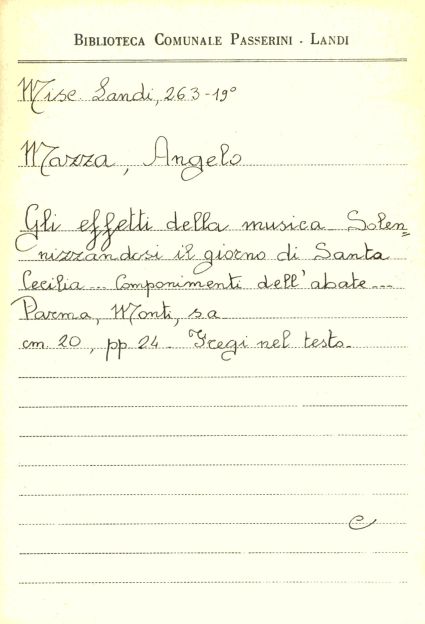 BIBLIOTECA COMUNALE PASSERINI - LANDI
Misc. Landi, 263-19°
Mazza, Angelo
Gli effetti della musica. Solen=
nizzandosi il giorno di Santa
Cecilia... Componimenti dell'abate...
Parma, Monti, s.a.
cm. 20, pp. 24. Fregi nel testo.
e